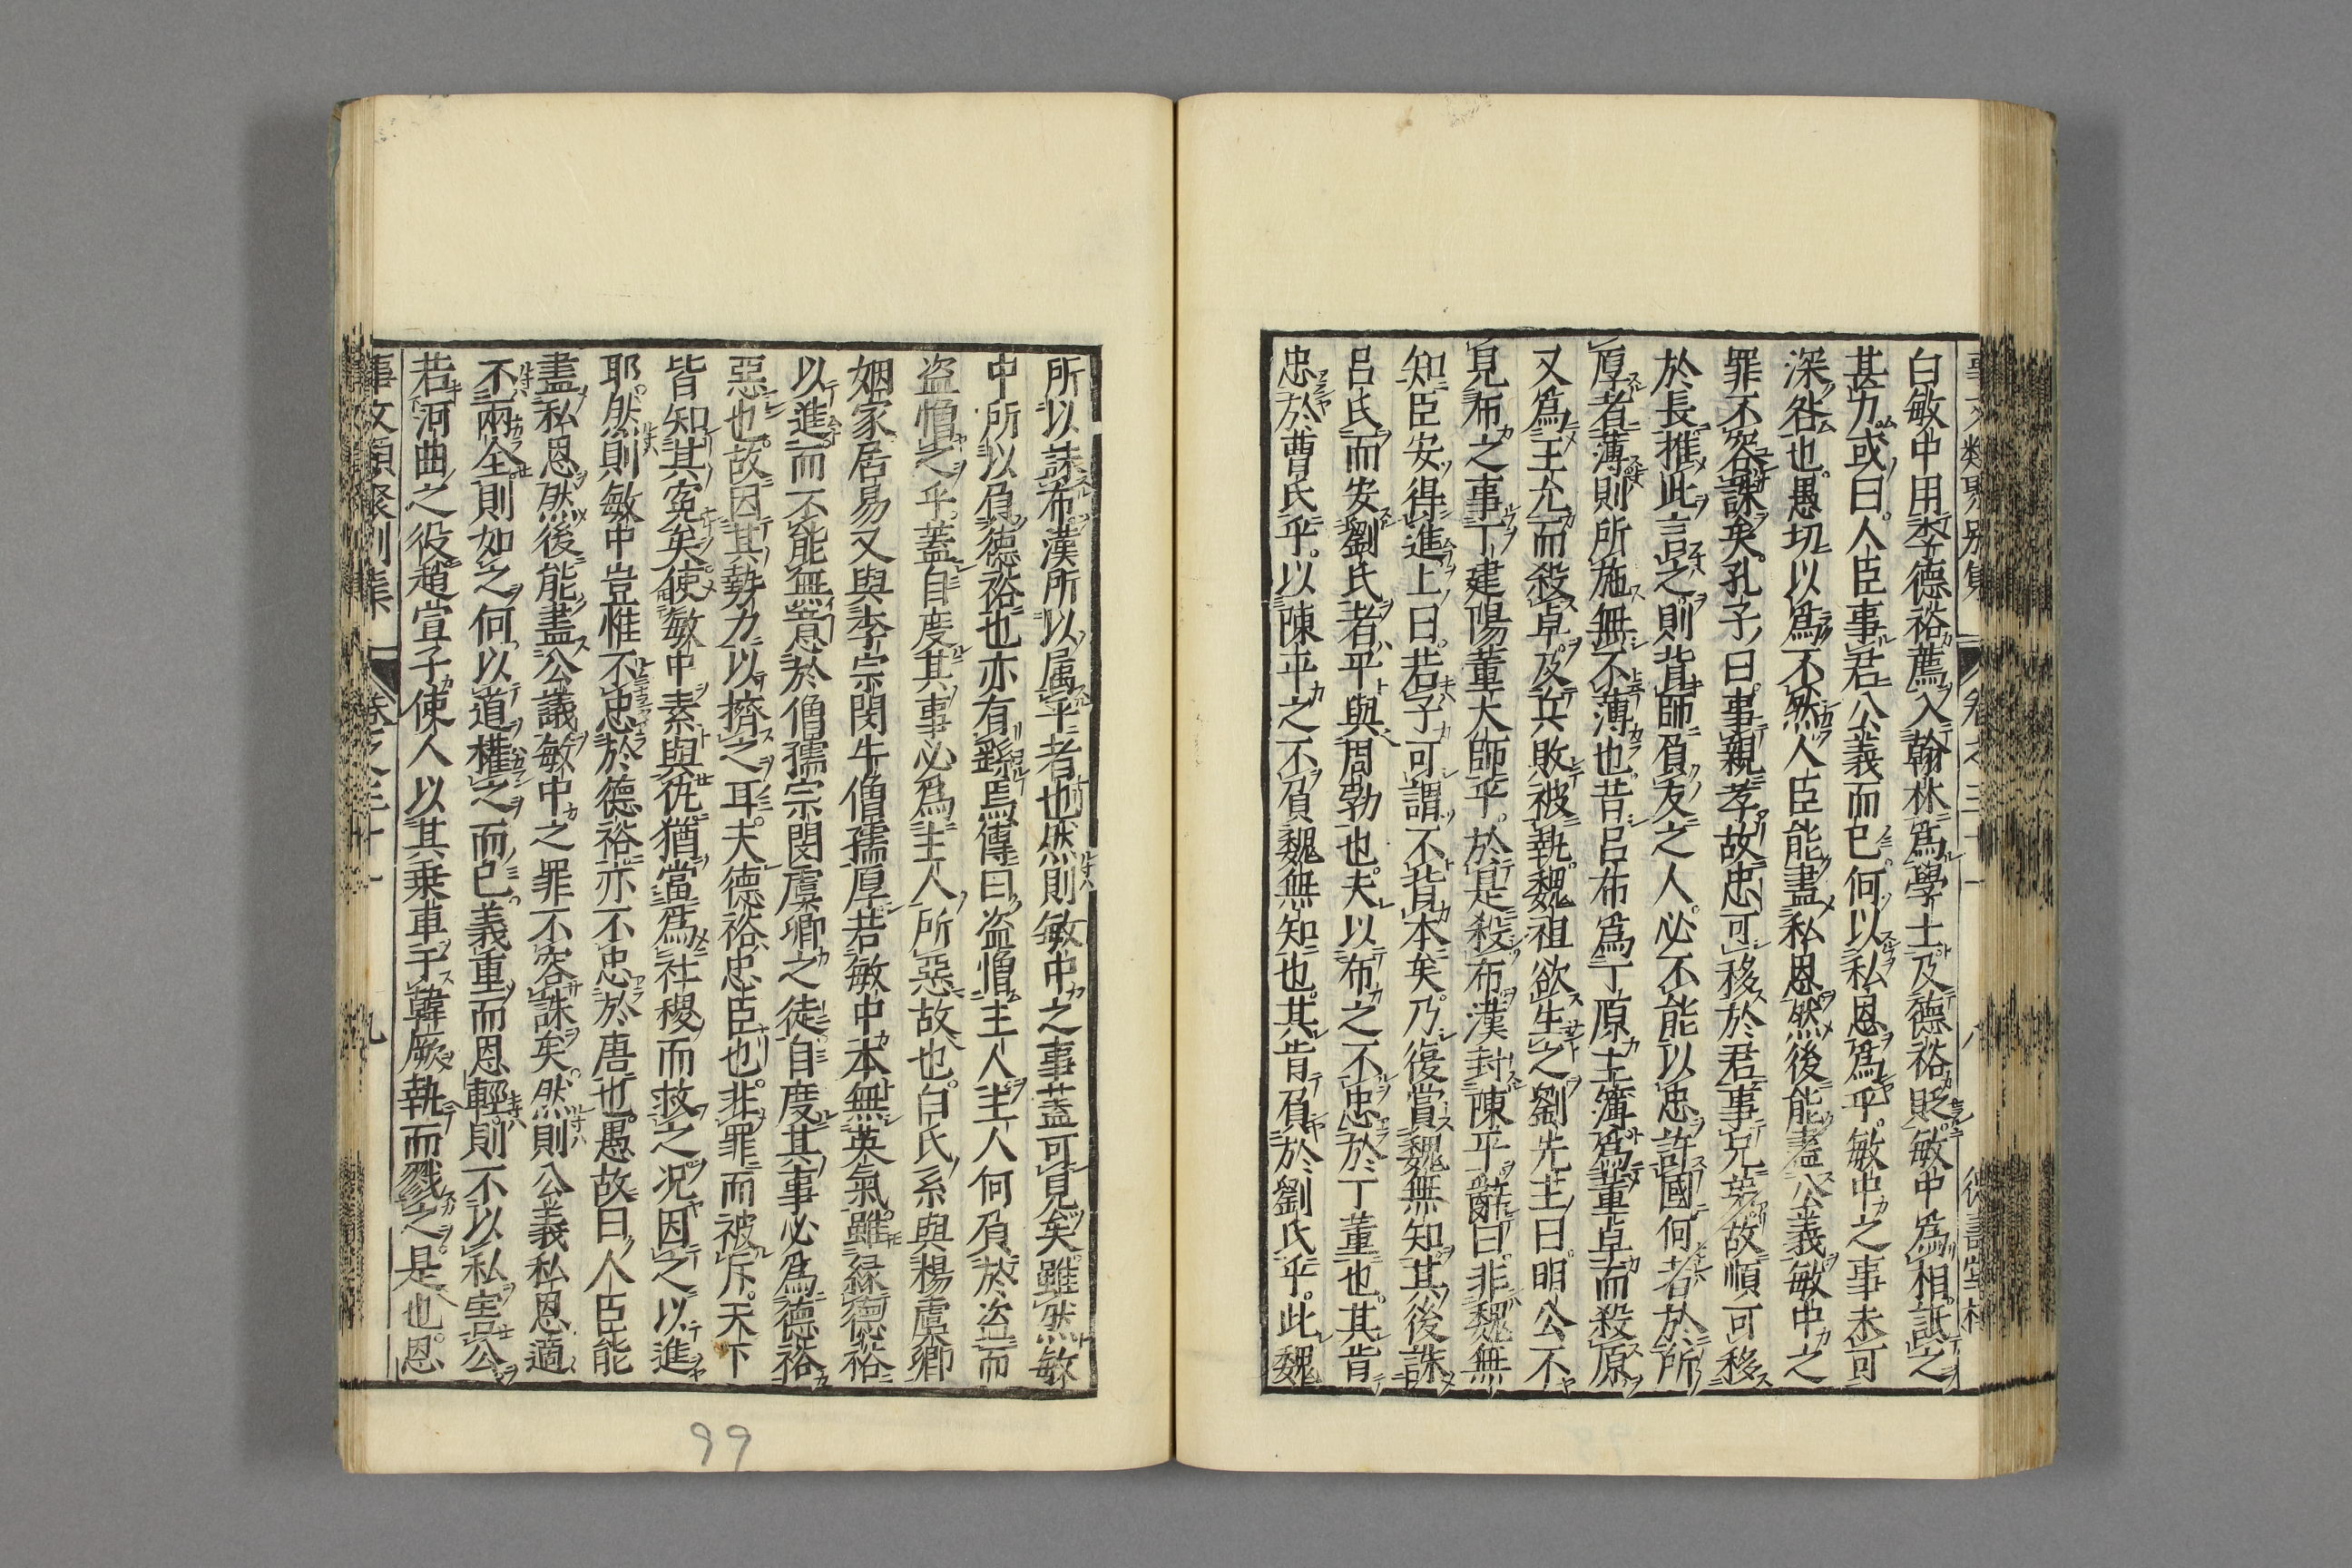 白敏中用李德裕薦入翰林爲學士及德裕貶敏中爲相詆之
甚力或曰人臣事君公義而已何以私恩爲乎敏中之事未可
深咎也愚切以爲不然人臣能盡私恩然後能盡公義敏中之
罪不容誅矣孔子曰事親孝故忠可移於君事兄弟故順可移
於長推此言之則背師負友之人必不能以忠許國何者於所
厚者薄則所施無不薄也昔呂布爲丁原主簿爲董卓而殺原
又爲王允而殺卓及兵敗被執魏祖欲生之劉先主曰明公不
見布之事丁建陽董太師乎於是殺布漢封陳平辭曰非魏無
知臣安得進上曰若子可謂不背本矣乃復賞魏無知其後誅
呂氏而安劉氏者平與周勃也夫以布之不忠於丁董也其肯
忠於曹氏乎以陳平之不負魏無知也其肯負於劉氏乎此魏
所以誅布漢所以属平者也然則敏中之事蓋可見矣雖然敏
中所以負德裕也亦有繇焉傳曰盗憎主人主人何負於盗而
盗憎之乎蓋自度其事必爲主人所惡故也白氏系與楊虞卿
姻家居易又與李宗閔牛僧孺厚若敏中本無英氣雖緣德裕
以進而不能無意於僧孺宗閔虞卿之徒自度其事必爲德裕
惡也故因其勢力以擠之耳夫德裕忠臣也非罪而被斥天下
皆知其寃矣使敏中素與仇猶當爲社稷而救之况因之以進
耶然則敏中豈惟不忠於德裕亦不忠於唐也愚故曰人臣能
盡私恩然後能盡公議敏中之罪不容誅矣然則公義私恩適
不兩全則如之何以道權之而已義重而恩輕則不以私害公
若河曲之役趙宣子使人以其乗車于韓厥執而戮之是也恩
事文類聚別集 卷之三十一 九
99